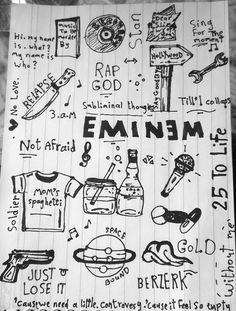 Hi. my name
is.. what?
my name is
who?
MUSIC
TO BE
MURDER
BY
Stan
Sing For
the
moment
HOLLYWOOD
Say Goodbye
No Love.
RELAPSE
3.a.m
RAP
GOD
Subliminal thoughts
Till' I collaps
EMINƎM
Not Afraid
Soldier
MOM's
spaghetti
25 To Life
SPACE
BOUND
GOLD
JUST
LOSE IT
BERZERK
Without me
'Cause we need a little, controvesy. 'Cause it feel so empty